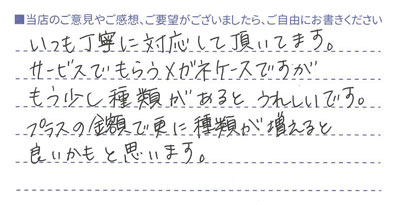 ■当店のご意見やご感想、ご要望がございましたら、ご自由にお書きください
いつも丁寧に対応して頂いてます。
サービスでもらうメガネケースですが
もう少し種類があるとうれしいです。
プラスの金額で更に種類が増えると
良いかもと思います。